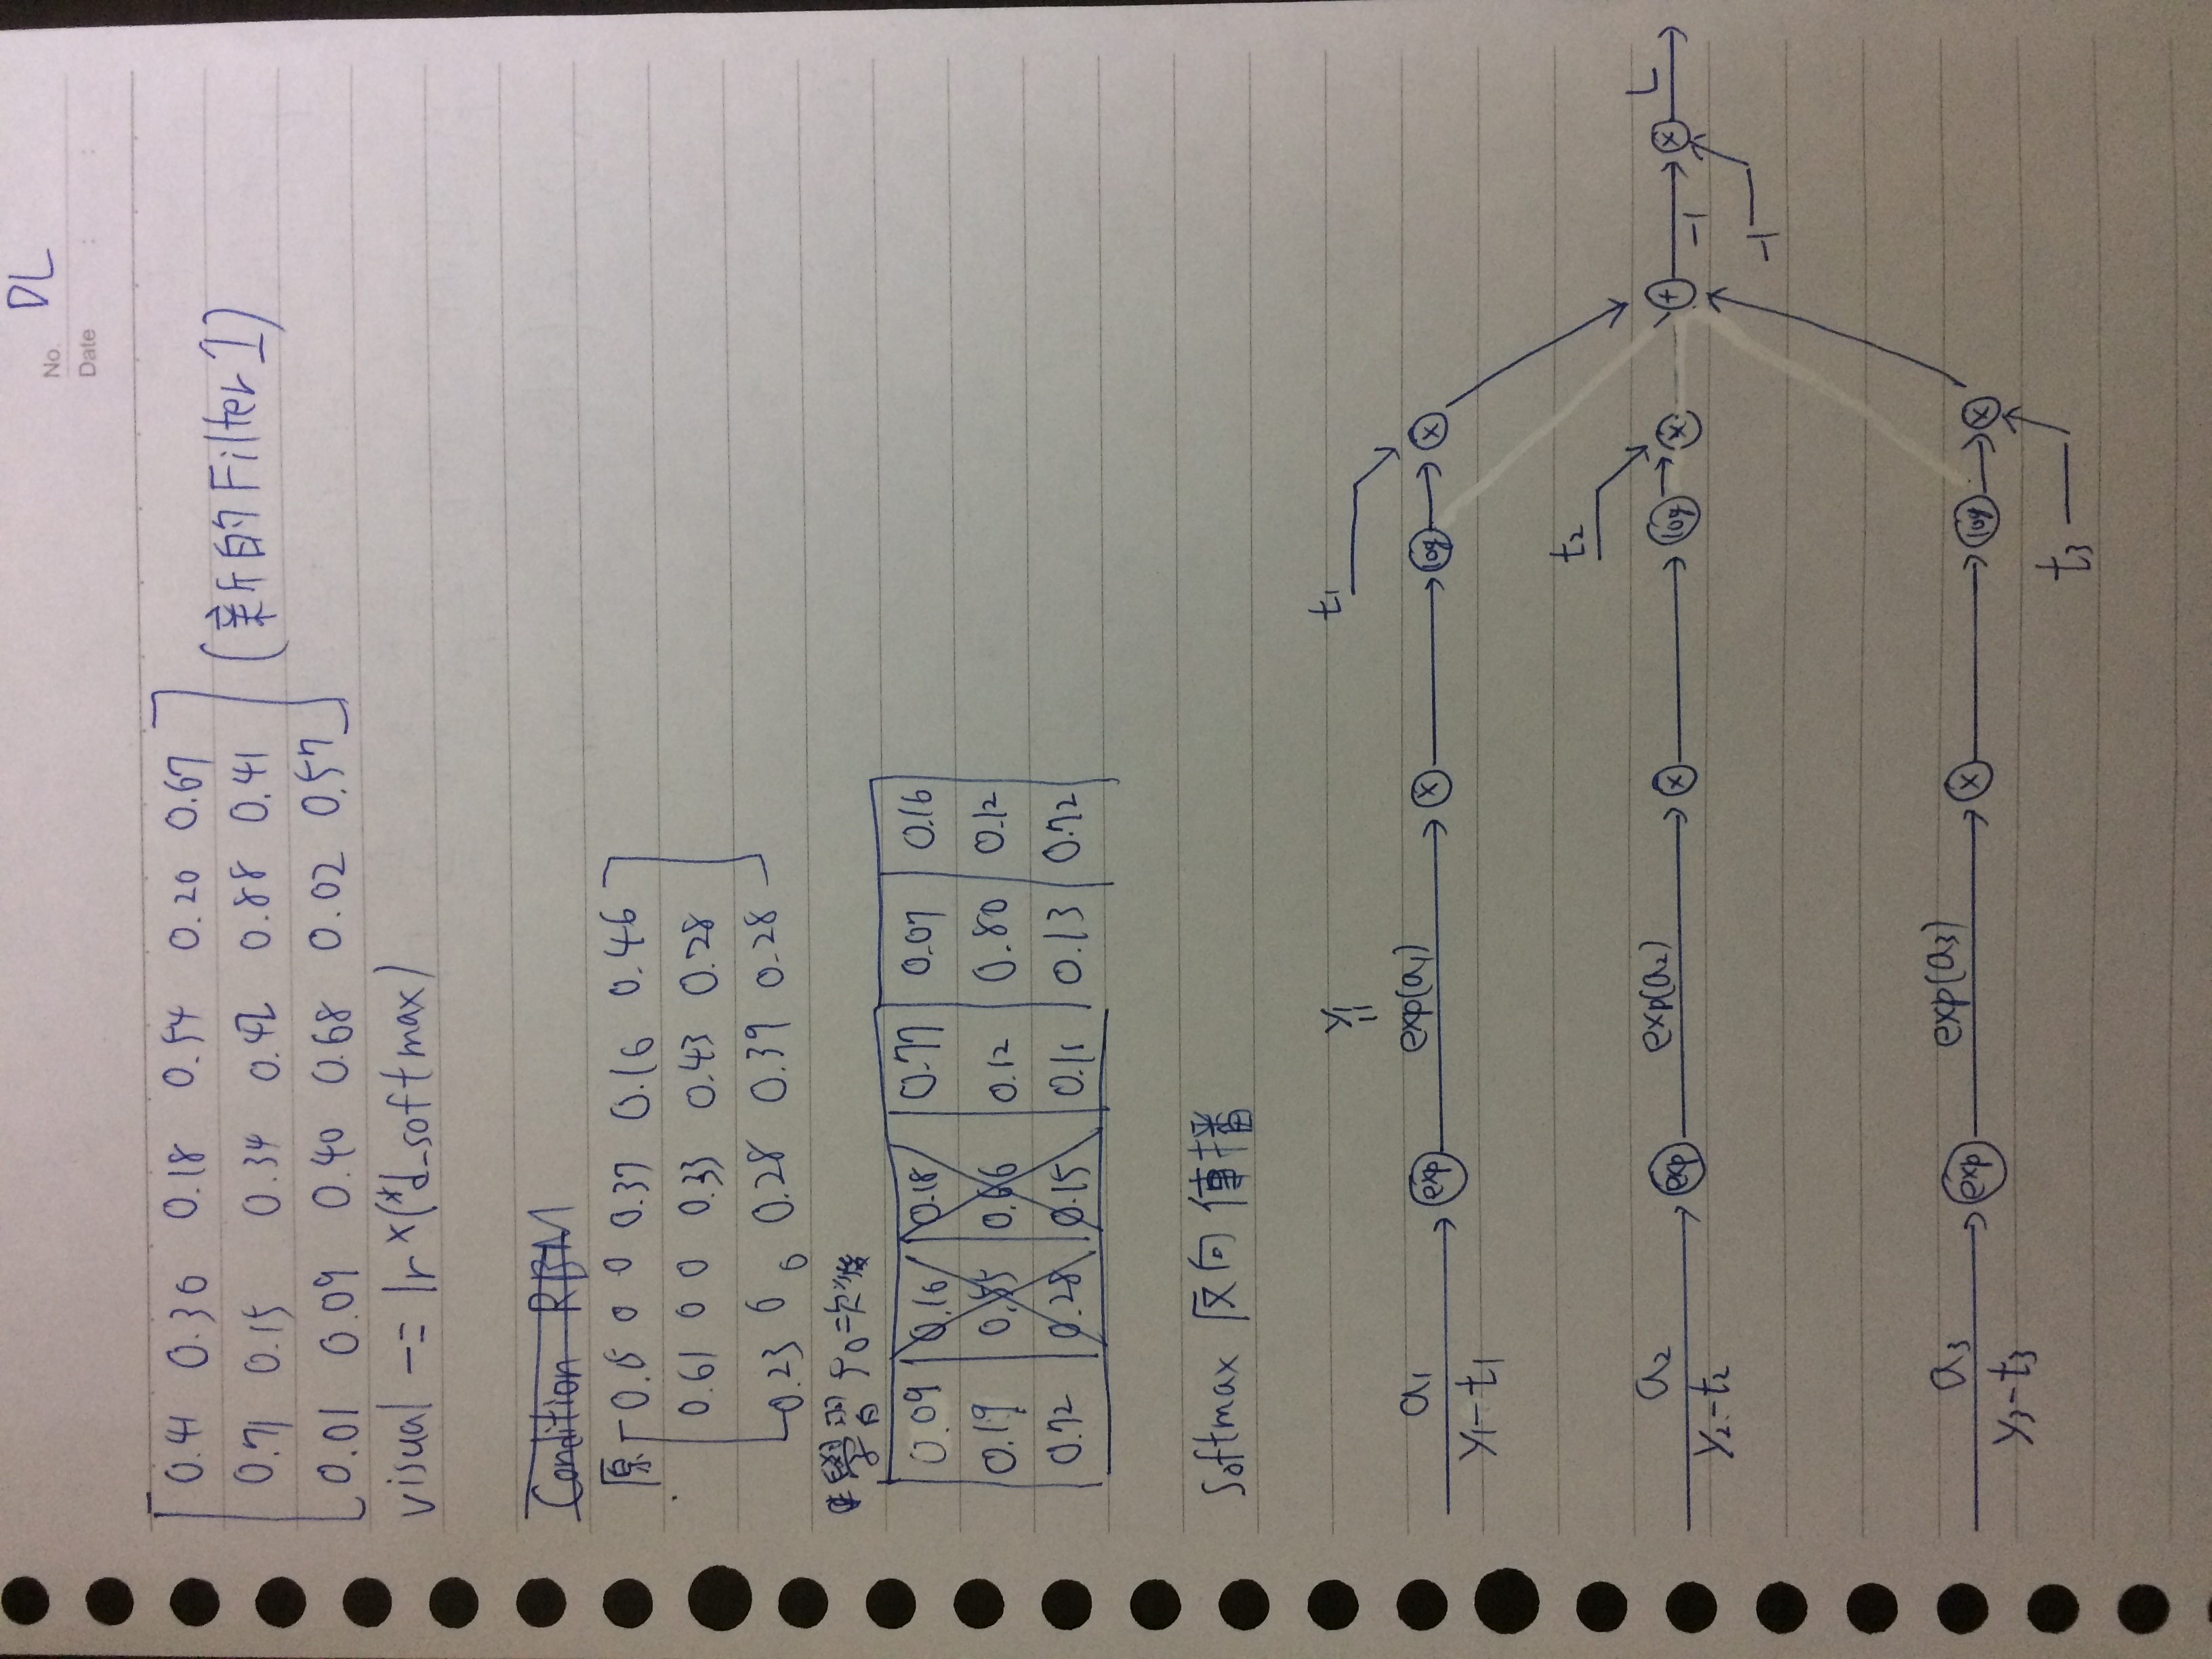 No. DL
Date : :
0.41 0.30 0.18 0.54 0.20 0.67
0.71 0.15 0.34 0.42 0.88 0.41 (新的Filter1)
0.01 0.09 0.40 0.68 0.02 0.57
visual -= lr*(*d_softmax)
Condition RBM
原 0.15 0 0 0.37 0.16 0.46
0.61 0 0 0.33 0.43 0.28
0.23 0 0 0.28 0.39 0.28
學習 次後
0.09 0.16 0.18 0.77 0.07 0.16
0.19 0.55 0.66 0.12 0.80 0.12
0.72 0.28 0.15 0.11 0.13 0.72
softmax 反向傳播
y1
=
t1
a1 exp exp(a1) × log ×
y1-t1
t2
a2 exp exp(a2) × log × + × L
y2-t2 -1
-1
a3 exp exp(a3) × log ×
y3-t3
t3